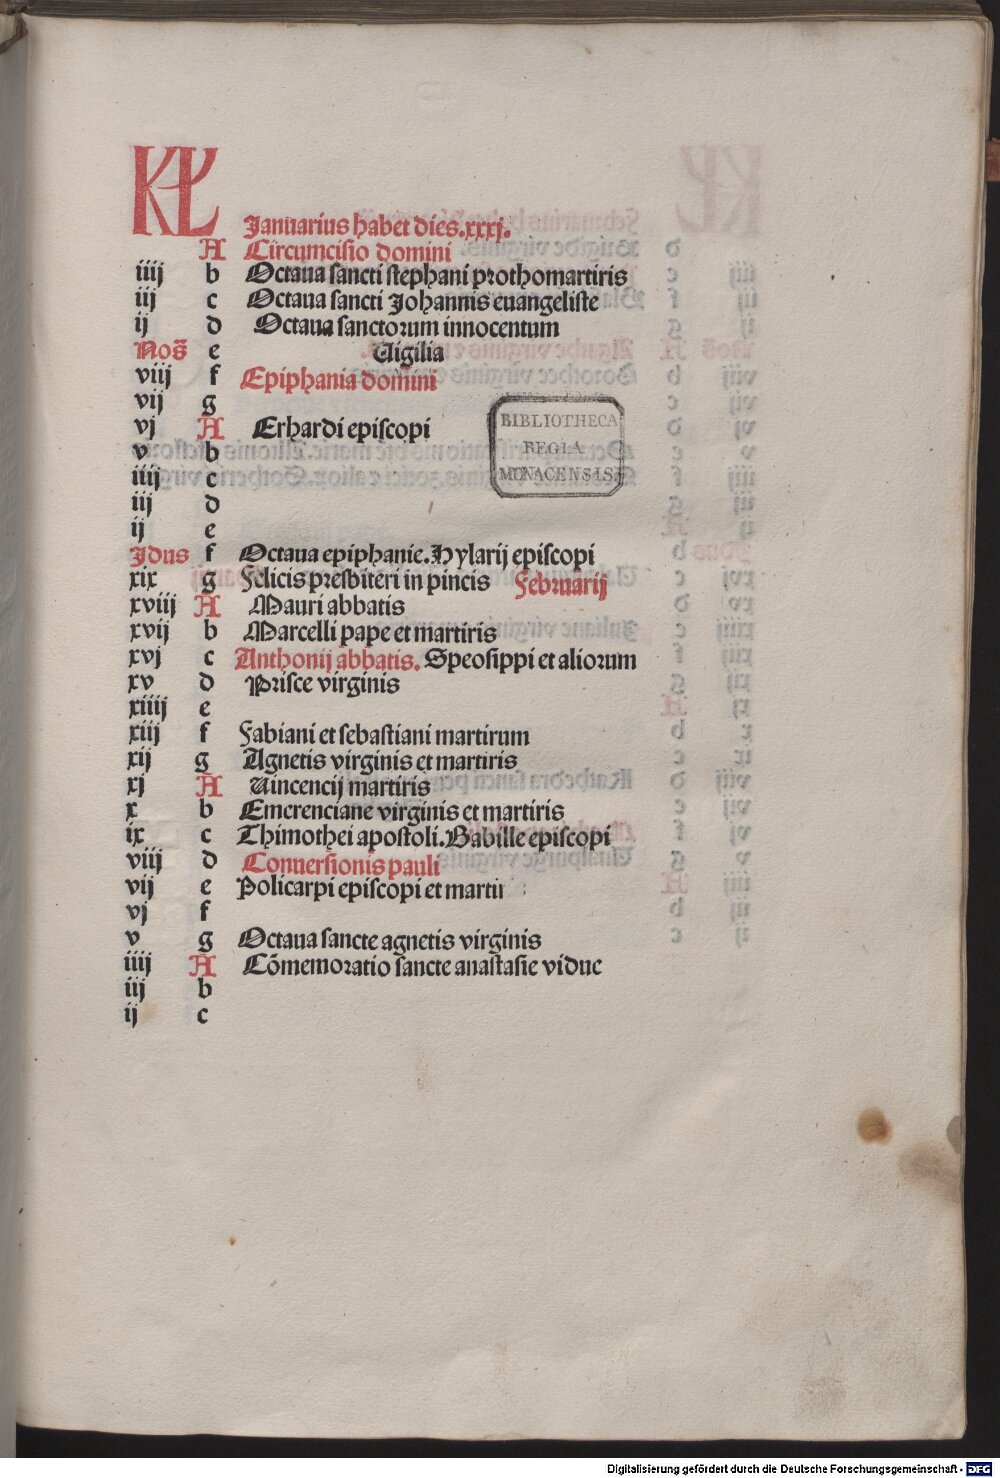 KL
Januarius habet dies.xxxj.
A Circumcisio domini
iiij b Octaua sancti stephani prothomartiris
iij c Octaua sancti Johannis euangeliste
ij d Octaua sanctorum innocentum
Nos̄ e Uigilia
viij f Epiphania domini
vij g
vj A Erhardi episcopi
v b
iiij c
iij d
ij e
Idus f Octaua epiphanie. Hylarij episcopi
xix g Felicis presbiteri in pincis Februarij
xviij A Mauri abbatis
xvij b Marcelli pape et martiris
xvj c Anthonij abbatis. Speosippi et aliorum
xv d Prisce virginis
xiiij e
xiij f Fabiani et sebastiani martirum
xij g Agnetis virginis et martiris
xj A Uincencij martiris
x b Emerenciane virginis et martiris
ix c Thimothei apostoli. Babille episcopi
viij d Conuersionis pauli
vij e Policarpi episcopi et martii
vj f
v g Octaua sancte agnetis virginis
iiij A Cōmemoratio sancte anastasie vidue
iij b
ij c
BIBLIOTHECA
REGIA
MONACENSIS.
Digitalisierung gefördert durch die Deutsche Forschungsgemeinschaft - DFG